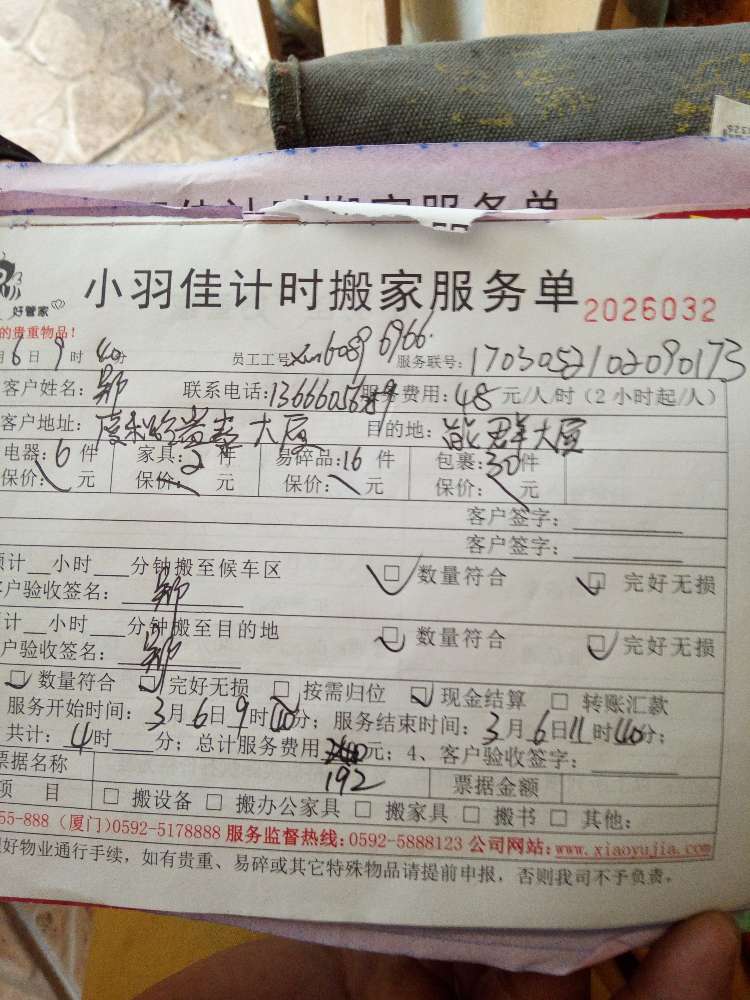 小羽佳计时搬家服务单 2026032
好管家
的贵重物品!
月6日9时40分 员工工号: 服务联号:1703052102090173
客户姓名:郑 联系电话: 服务费用:48元/人/时(2小时起/人)
客户地址: 大厦 目的地: 群大厦
电器:6件 家具:2件 易碎品:16件 包裹:30件
保价: 元 保价: 元 保价: 元 保价: 元
客户签字:
客户签字:
预计 小时 分钟搬至候车区 □数量符合 □完好无损
客户验收签名:郑
预计 小时 分钟搬至目的地 □数量符合 □完好无损
客户验收签名:郑
□数量符合 □完好无损 □按需归位 □现金结算 □转账汇款
服务开始时间:3月6日9时40分;服务结束时间:3月6日11时40分;
共计:4时 分;总计服务费用 元;4、客户验收签字:
192
票据名称 票据金额
项 目 □搬设备 □搬办公家具 □搬家具 □搬书 □其他:
55-888 (厦门)0592-5178888 服务监督热线:0592-5888123 公司网站:www.xiaoyujia.com
好物业通行手续,如有贵重、易碎或其它特殊物品请提前申报,否则我司不予负责。